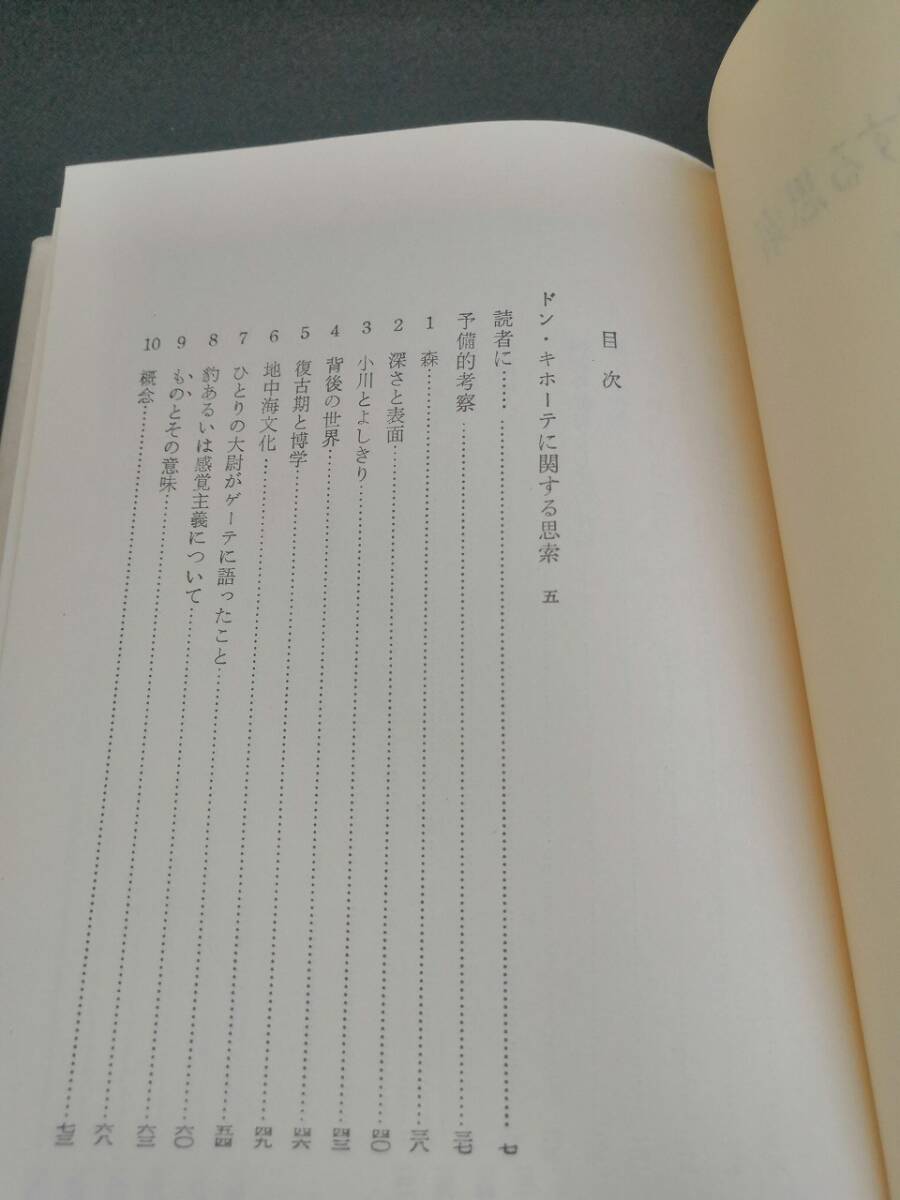 目次
ドン・キホーテに関する思索 五
読者に……七
予備的考察……三七
1 森……三八
2 深さと表面……四〇
3 小川とよしきり……四三
4 背後の世界……四六
5 復古期と博学……四九
6 地中海文化……五四
7 ひとりの大尉がゲーテに語ったこと……六〇
8 豹あるいは感覚主義について……六三
9 ものとその意味……六八
10 概念……七三